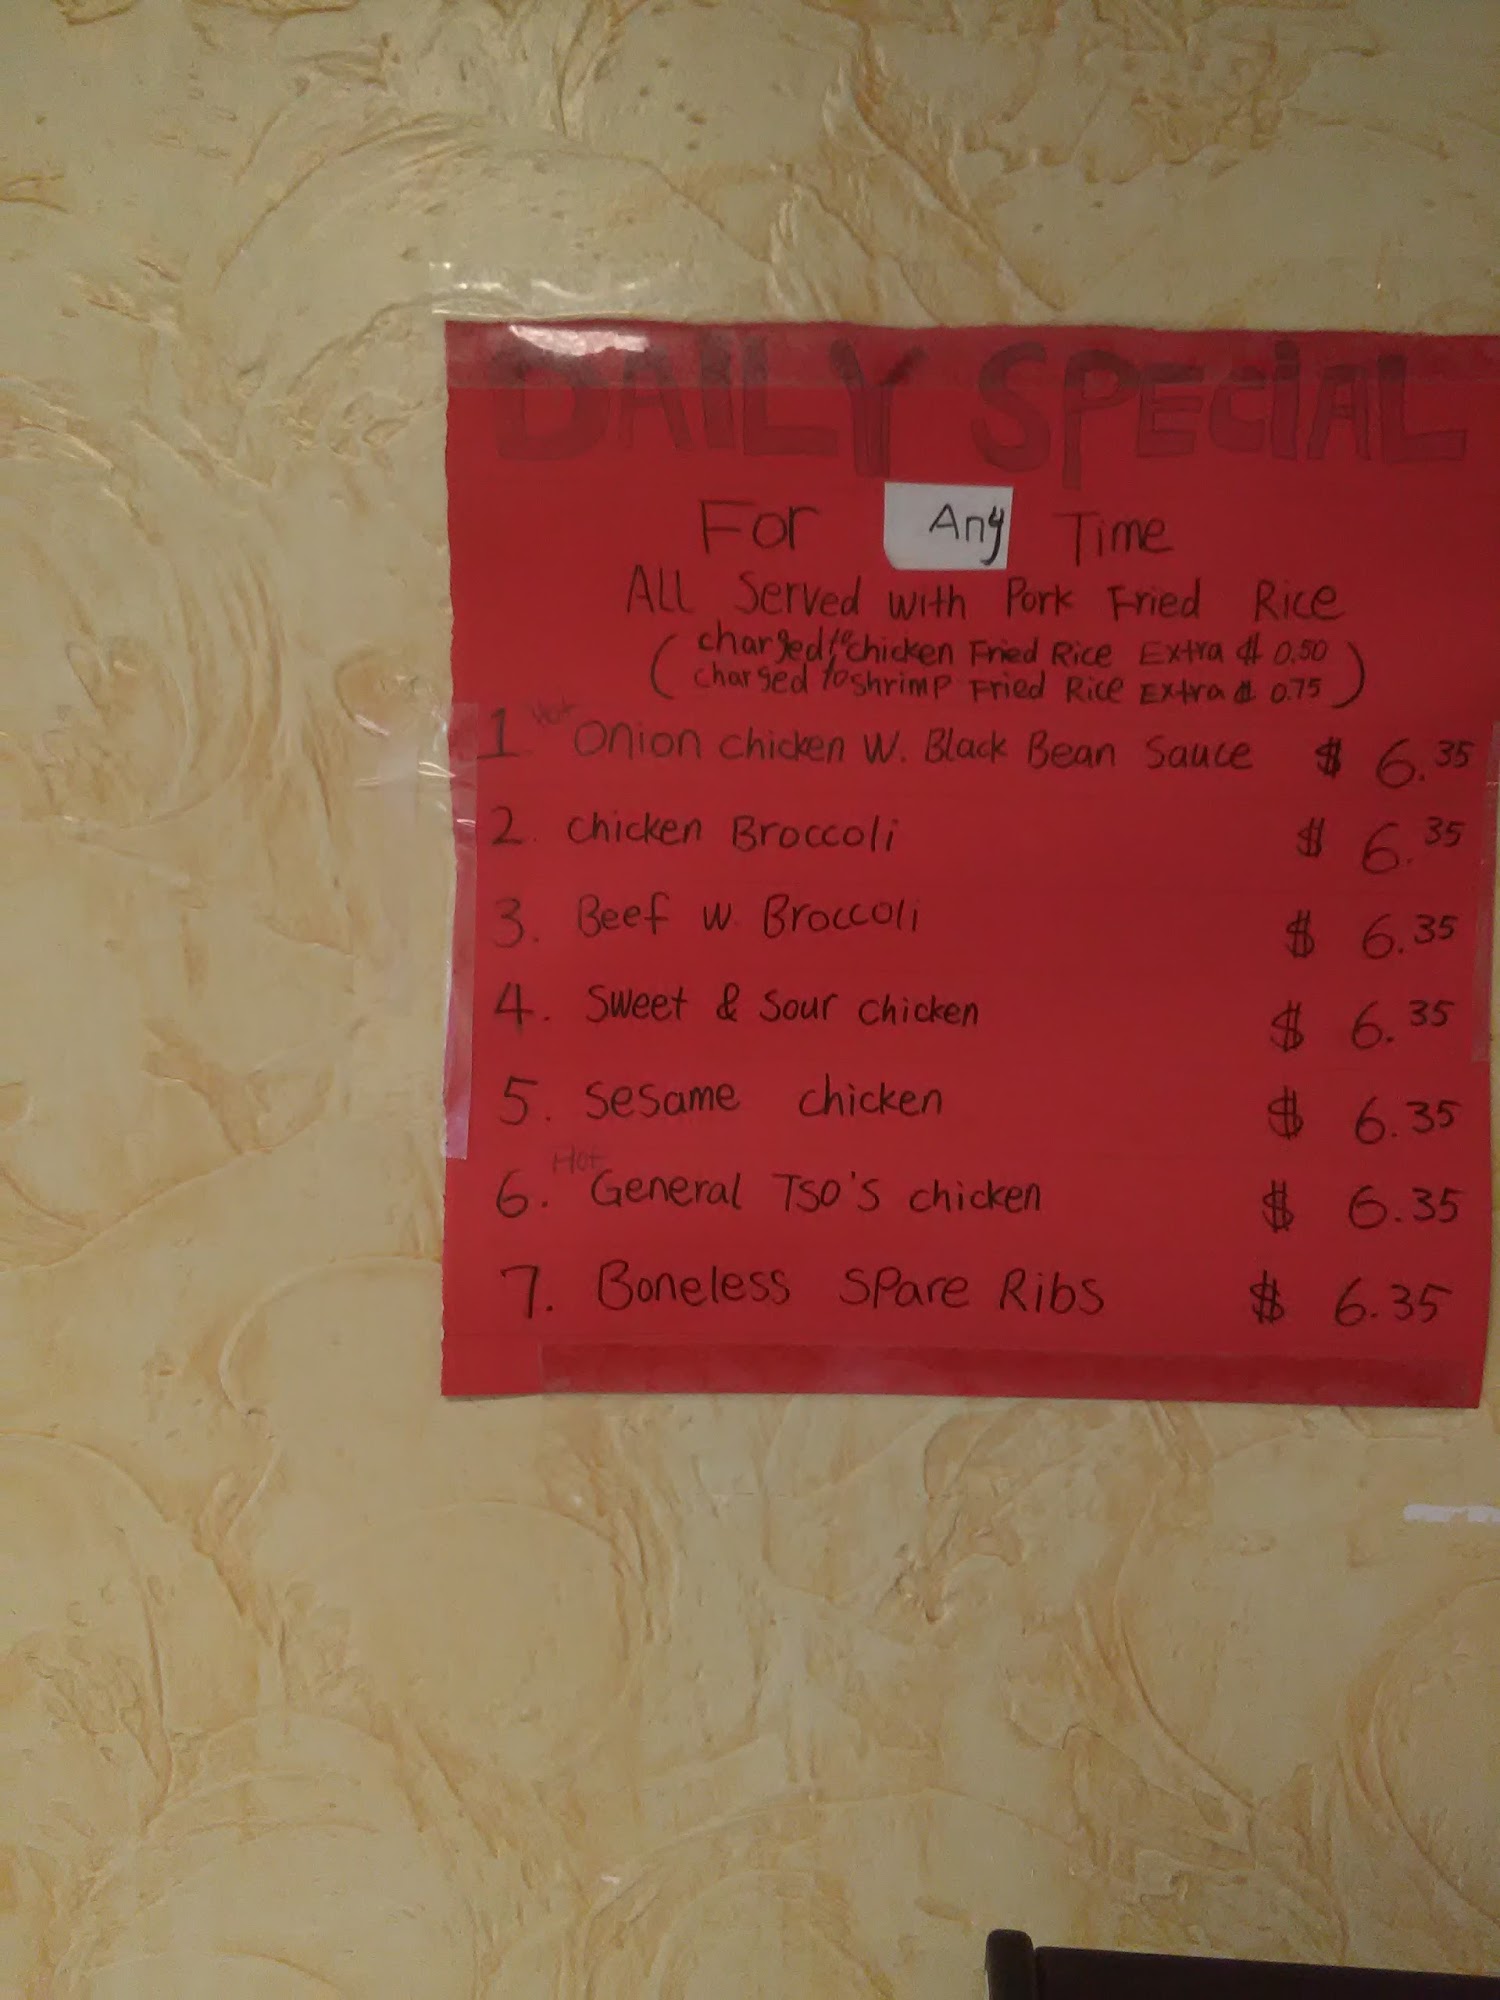 DAILY SPECIAL
For Any Time
ALL Served with Pork Fried Rice
(charged to chicken Fried Rice Extra $ 0.50)
(charged to shrimp Fried Rice Extra $ 0.75)
1 Hot Onion chicken W. Black Bean Sauce $ 6.35
2. chicken Broccoli $ 6.35
3. Beef w. Broccoli $ 6.35
4. Sweet & Sour chicken $ 6.35
5. Sesame chicken $ 6.35
6. Hot General TSO'S chicken $ 6.35
7. Boneless SPare RibS $ 6.35